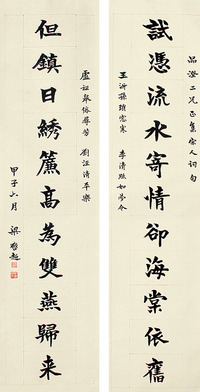 品澄二兄正集宋人詞句
試憑流水寄情卻海棠依舊
王沂孫瑣窗寒 李清照如夢令
盧祖皋倦尋芳 劉涇清平樂
但鎮日綉簾高為雙燕歸来
甲子六月 梁啟超